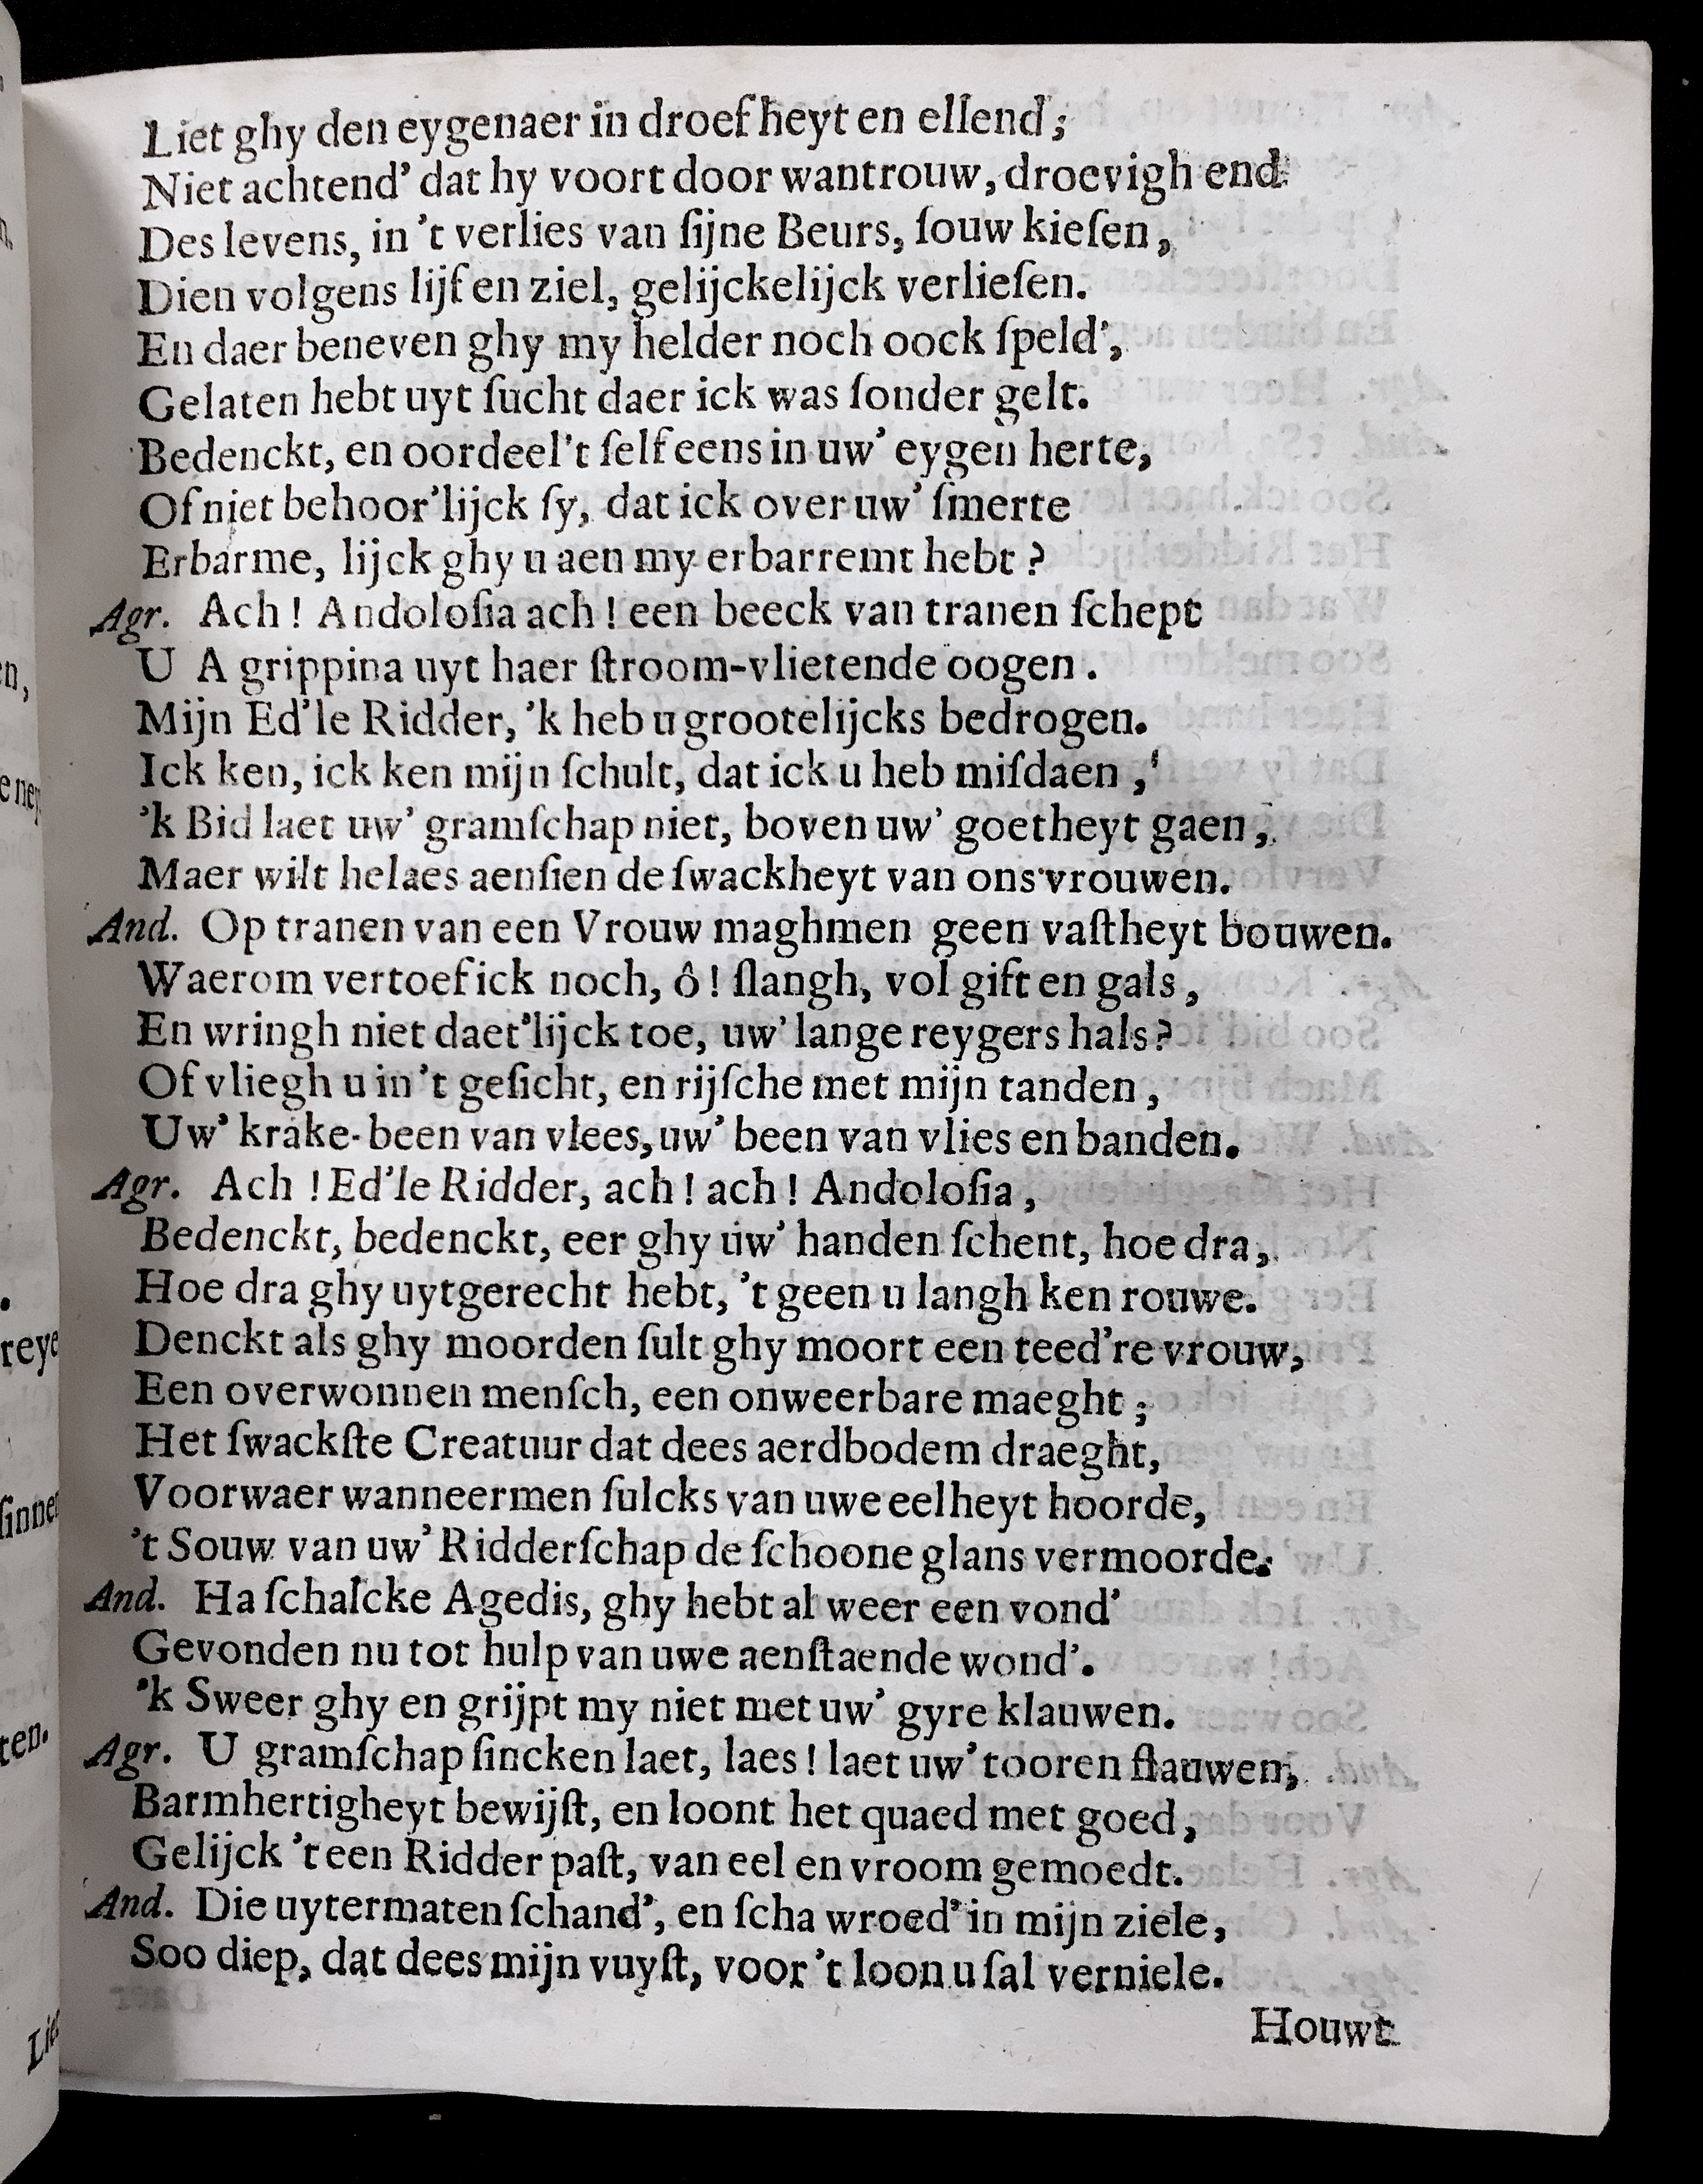 Liet ghy den eygenaer in droefheyt en ellend;
Niet achtend' dat hy voort door wantrouw, droevigh end
Des levens, in 't verlies van ſijne Beurs, ſouw kieſen,
Dien volgens lijf en ziel, gelijckelijck verlieſen.
En daer beneven ghy my helder noch oock ſpeld',
Gelaten hebt uyt ſucht daer ick was ſonder gelt.
Bedenckt, en oordeel't ſelf eens in uw' eygen herte,
Of niet behoor'lijck ſy, dat ick over uw' ſmerte
Erbarme, lijck ghy u aen my erbarremt hebt?
Agr. Ach! Andoloſia ach! een beeck van tranen ſchept
U Agrippina uyt haer ſtroom-vlietende oogen.
Mijn Ed'le Ridder, 'k heb u grootelijcks bedrogen.
Ick ken, ick ken mijn ſchult, dat ick u heb miſdaen,
'k Bid laet uw' gramſchap niet, boven uw' goetheyt gaen,
Maer wilt helaes aenſien de ſwackheyt van ons vrouwen.
And. Op tranen van een Vrouw maghmen geen vaſtheyt bouwen.
Waerom vertoef ick noch, ô! ſlangh, vol gift en gals,
En wringh niet daet'lijck toe, uw' lange reygers hals?
Of vliegh u in 't geſicht, en rijſche met mijn tanden,
Uw' krake-been van vlees, uw' been van vlies en banden.
Agr. Ach! Ed'le Ridder, ach! ach! Andoloſia,
Bedenckt, bedenckt, eer ghy uw' handen ſchent, hoe dra,
Hoe dra ghy uytgerecht hebt, 't geen u langh ken rouwe.
Denckt als ghy moorden ſult ghy moort een teed're vrouw,
Een overwonnen menſch, een onweerbare maeght;
Het ſwackſte Creatuur dat dees aerdbodem draeght,
Voorwaer wanneermen ſulcks van uwe eelheyt hoorde,
't Souw van uw' Ridderſchap de ſchoone glans vermoorde.
And. Ha ſchalcke Agedis, ghy hebt al weer een vond'
Gevonden nu tot hulp van uwe aenſtaende wond'.
'k Sweer ghy en grijpt my niet met uw' gyre klauwen.
Agr. U gramſchap ſincken laet, laes! laet uw' tooren flauwen,
Barmhertigheyt bewijſt, en loont het quaed met goed,
Gelijck 't een Ridder paſt, van eel en vroom gemoedt.
And. Die uytermaten ſchand', en ſcha wroed' in mijn ziele,
Soo diep, dat dees mijn vuyſt, voor 't loon u ſal verniele.
Houwt